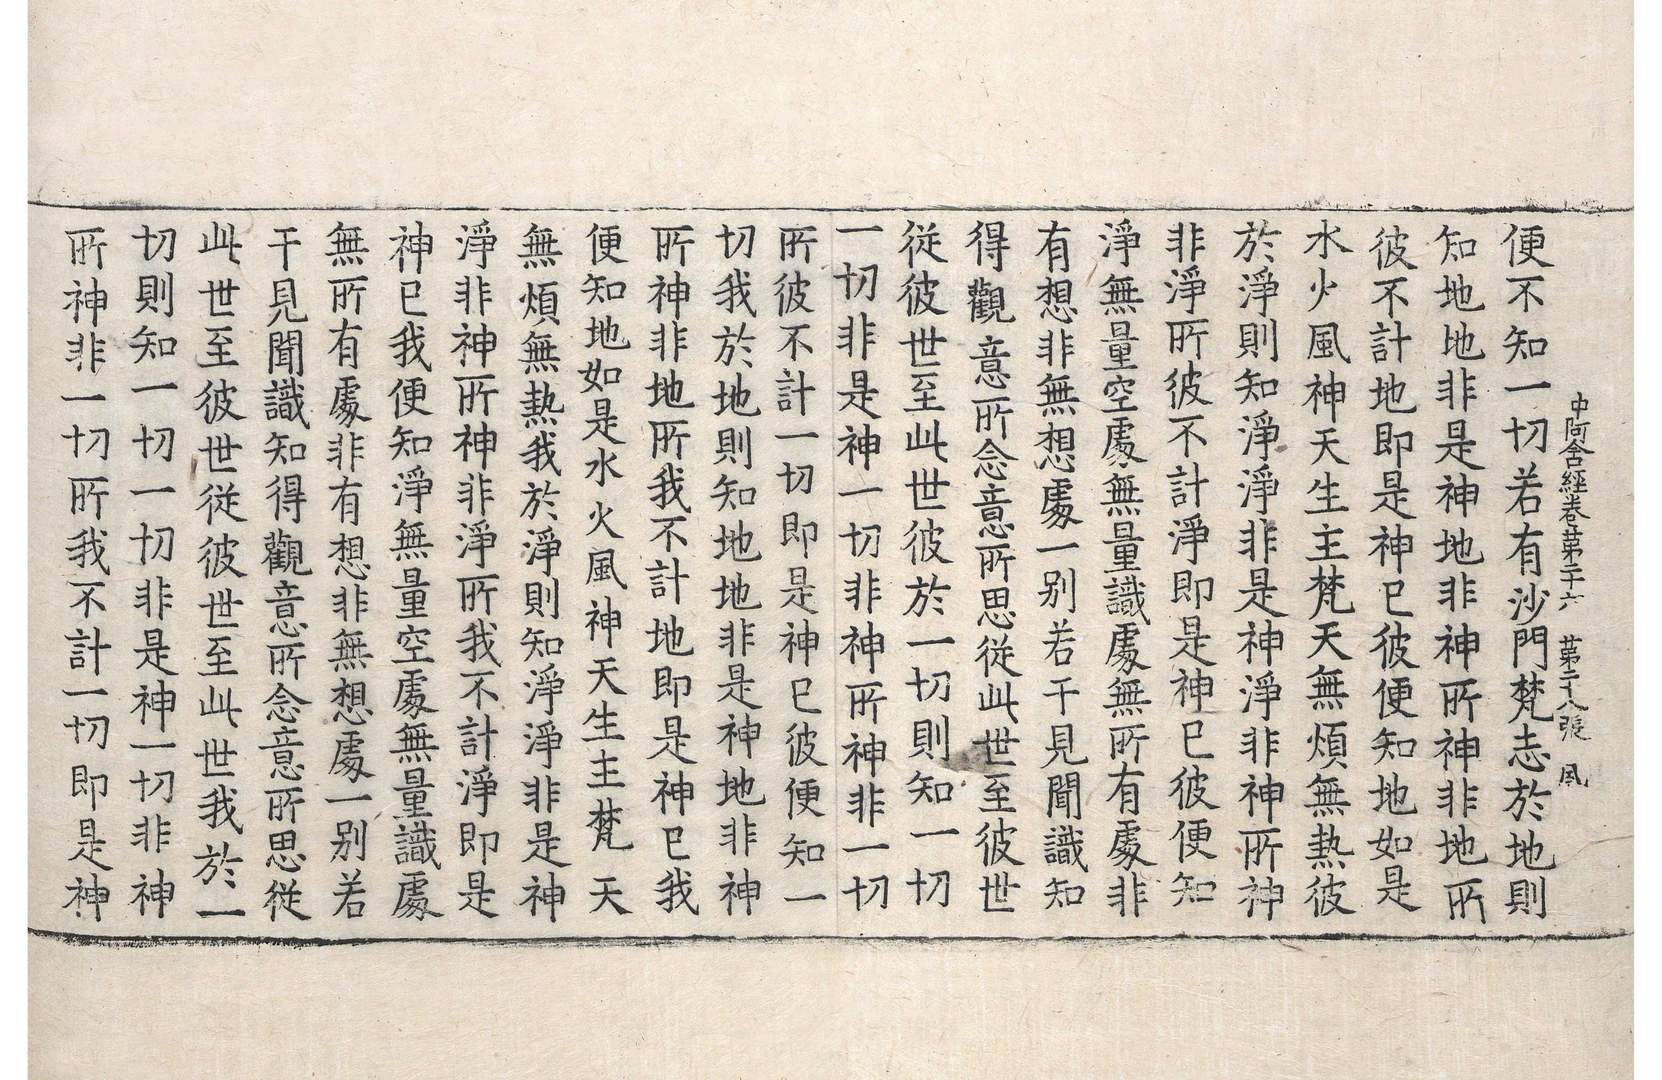 中阿含經卷苐二十六 苐二十八張 風
便不知一切若有沙門梵志於地則
知地地非是神地非神所神非地所
彼不計地即是神已彼便知地如是
水火風神天生主梵天無煩無熱彼
於淨則知淨淨非是神淨非神所神
非淨所彼不計淨即是神已彼便知
淨無量空處無量識處無所有處非
有想非無想處一別若干見聞識知
得觀意所念意所思從此世至彼世
從彼世至此世彼於一切則知一切
一切非是神一切非神所神非一切
所彼不計一切即是神已彼便知一
切我於地則知地地非是神地非神
所神非地所我不計地即是神已我
便知地如是水火風神天生主梵天
無煩無熱我於淨則知淨淨非是神
淨非神所神非淨所我不計淨即是
神已我便知淨無量空處無量識處
無所有處非有想非無想處一別若
干見聞識知得觀意所念意所思從
此世至彼世從彼世至此世我於一
切則知一切一切非是神一切非神
所神非一切所我不計一切即是神